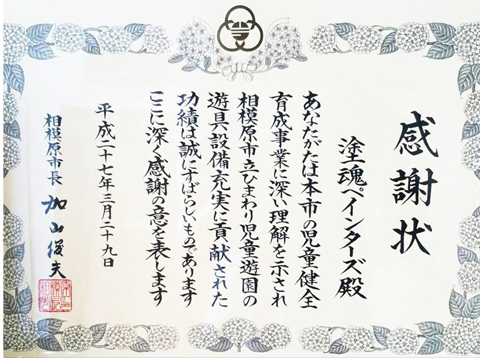 感謝状
塗魂ペインターズ殿
あなたがたは本市の児童健全
育成事業に深い理解を示され
相模原市立ひまわり児童遊園の
遊具設備充実に貢献された
功績は誠にすばらしいものであります
ここに深く感謝の意を表します
平成二十七年三月二十九日
相模原市長 加山俊夫